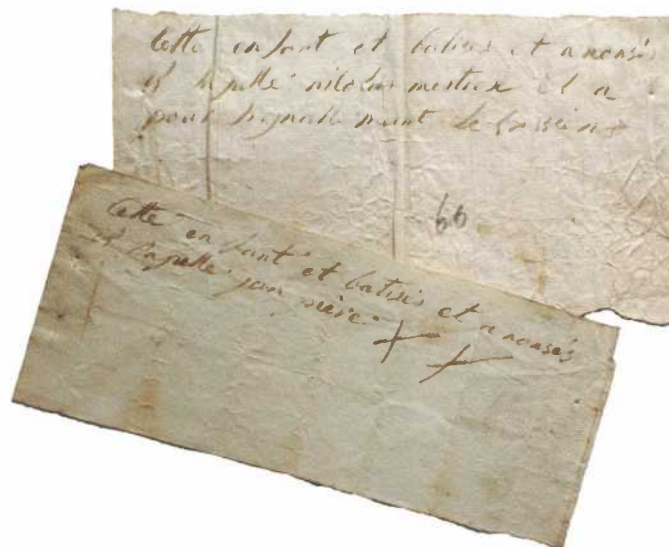 Cette enfant et batisés et a nonsés
il sapelle nicolas
il a
pour signalle mant le
66
Cette enfant et batisés et a nonsés
il sapelle jean piere